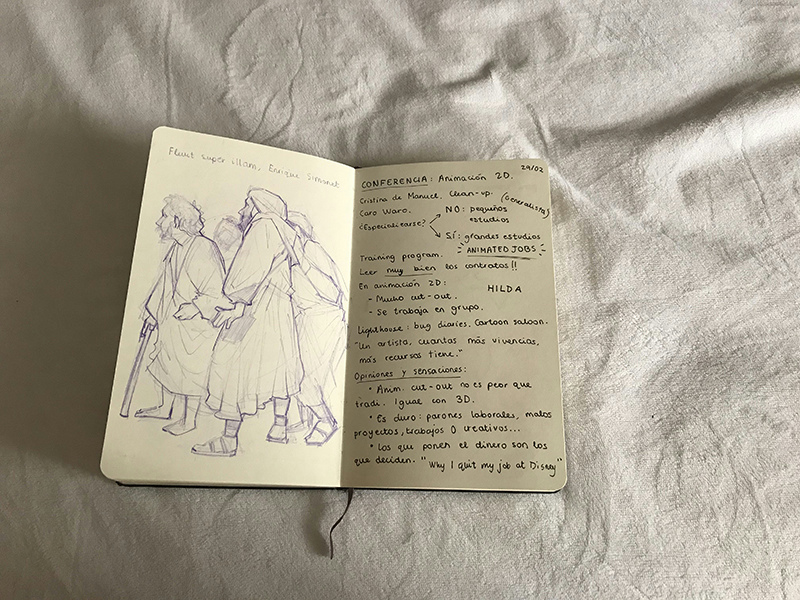 Flevit super illam, Enrique Simonet
29/02
CONFERENCIA: Animación 2D.
Cristina de Manuel. Clean-up.
(Generalista)
Caro Waro.
¿Especializarse?
NO: pequeños
estudios
Sí: grandes estudios
ANIMATED JOBS
Training program.
Leer muy bien los contratos!!
En animación 2D:
HILDA
- Mucho cut-out.
- Se trabaja en grupo.
Lighthouse: bug diaries. Cartoon saloon.
"Un artista, cuantas más vivencias,
más recursos tiene."
Opiniones y sensaciones:
• Anim. cut-out no es peor que
tradi. Igual con 3D.
• Es duro: parones laborales, malos
proyectos, trabajos 0 creativos...
• Los que ponen el dinero son los
que deciden. "Why I quit my job at Disney"